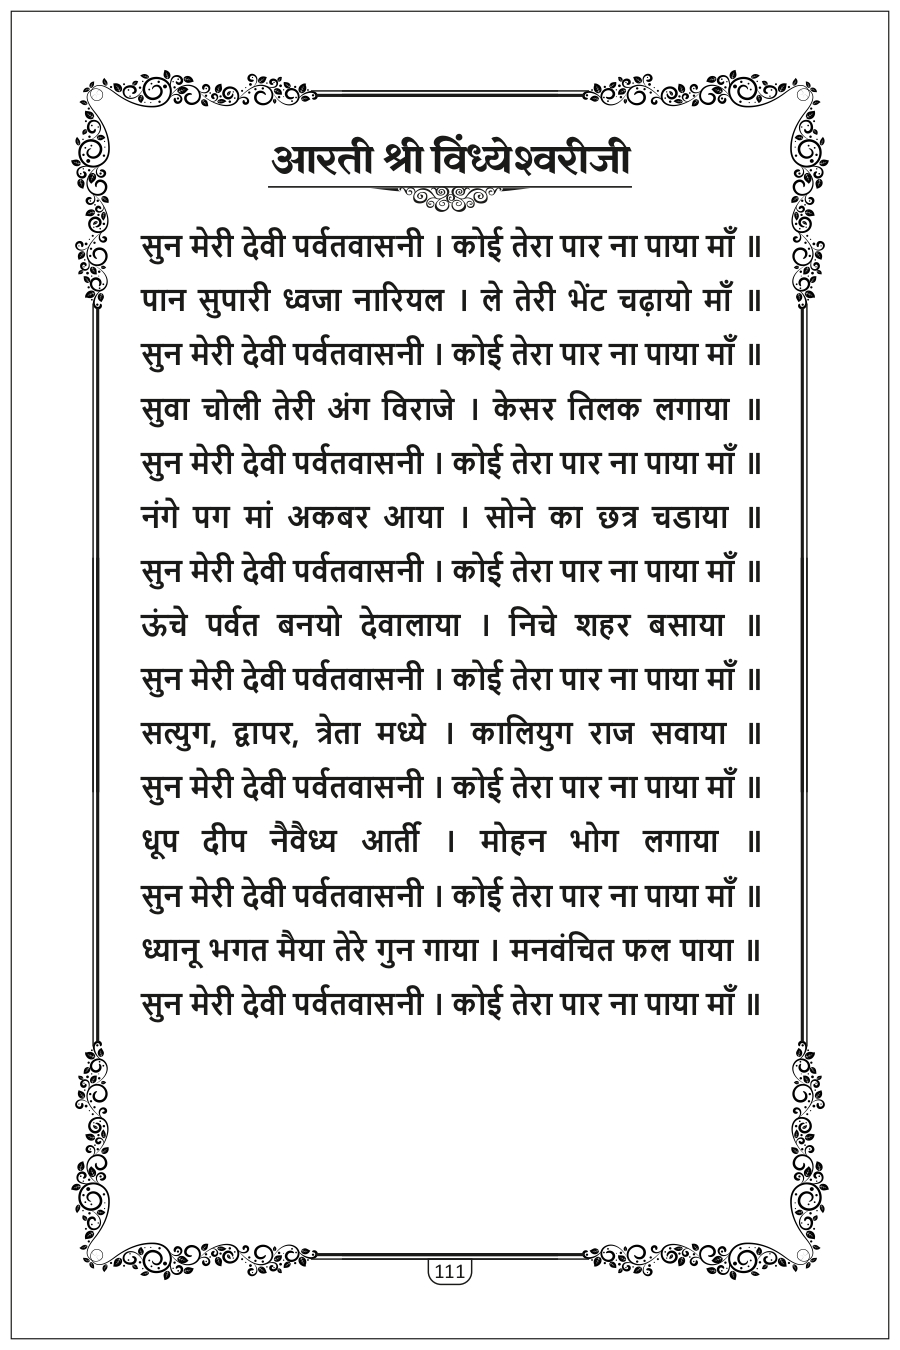 आरती श्री विंध्येश्वरीजी
सुन मेरी देवी पर्वतवासनी । कोई तेरा पार ना पाया माँ ॥
पान सुपारी ध्वजा नारियल । ले तेरी भेंट चढ़ायो माँ ॥
सुन मेरी देवी पर्वतवासनी । कोई तेरा पार ना पाया माँ ॥
सुवा चोली तेरी अंग विराजे । केसर तिलक लगाया ॥
सुन मेरी देवी पर्वतवासनी । कोई तेरा पार ना पाया माँ ॥
नंगे पग मां अकबर आया । सोने का छत्र चडाया ॥
सुन मेरी देवी पर्वतवासनी । कोई तेरा पार ना पाया माँ ॥
ऊंचे पर्वत बनयो देवालाया । निचे शहर बसाया ॥
सुन मेरी देवी पर्वतवासनी । कोई तेरा पार ना पाया माँ ॥
सत्युग, द्वापर, त्रेता मध्ये । कालियुग राज सवाया ॥
सुन मेरी देवी पर्वतवासनी । कोई तेरा पार ना पाया माँ ॥
धूप दीप नैवैध्य आर्ती । मोहन भोग लगाया ॥
सुन मेरी देवी पर्वतवासनी । कोई तेरा पार ना पाया माँ ॥
ध्यानू भगत मैया तेरे गुन गाया । मनवंचित फल पाया ॥
सुन मेरी देवी पर्वतवासनी । कोई तेरा पार ना पाया माँ ॥
111